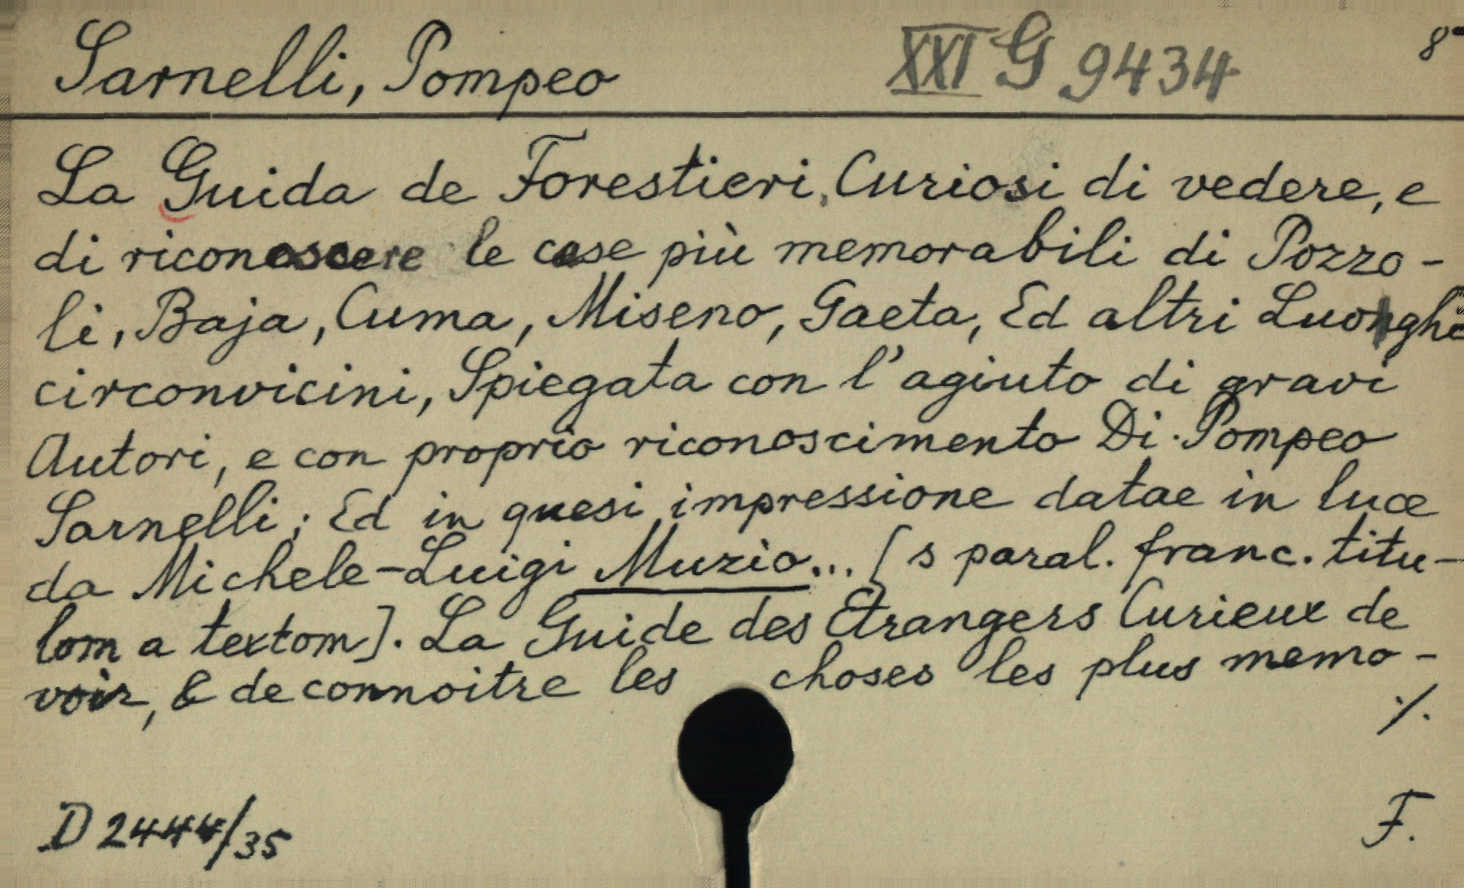 Sarnelli, Pompeo XXI G 9434 8-
La Guida de Forestieri, Curiosi di vedere, e
di riconoscere le cose più memorabili di Pozzo-
li, Baja, Cuma, Miseno, Gaeta, Ed altri Luoghi
circonvicini, Spiegata con l'agiuto di gravi
Autori, e con proprio riconoscimento Di Pompeo
Sarnelli; Ed in quesi impressione datae in luce
da Michele-Luigi Muzio... [s paral. franc. titu-
lom a textom]. La Guide des Etrangers Curieux de
voir, & de connoitre les choses les plus memo-
%
D 2444/35 F.